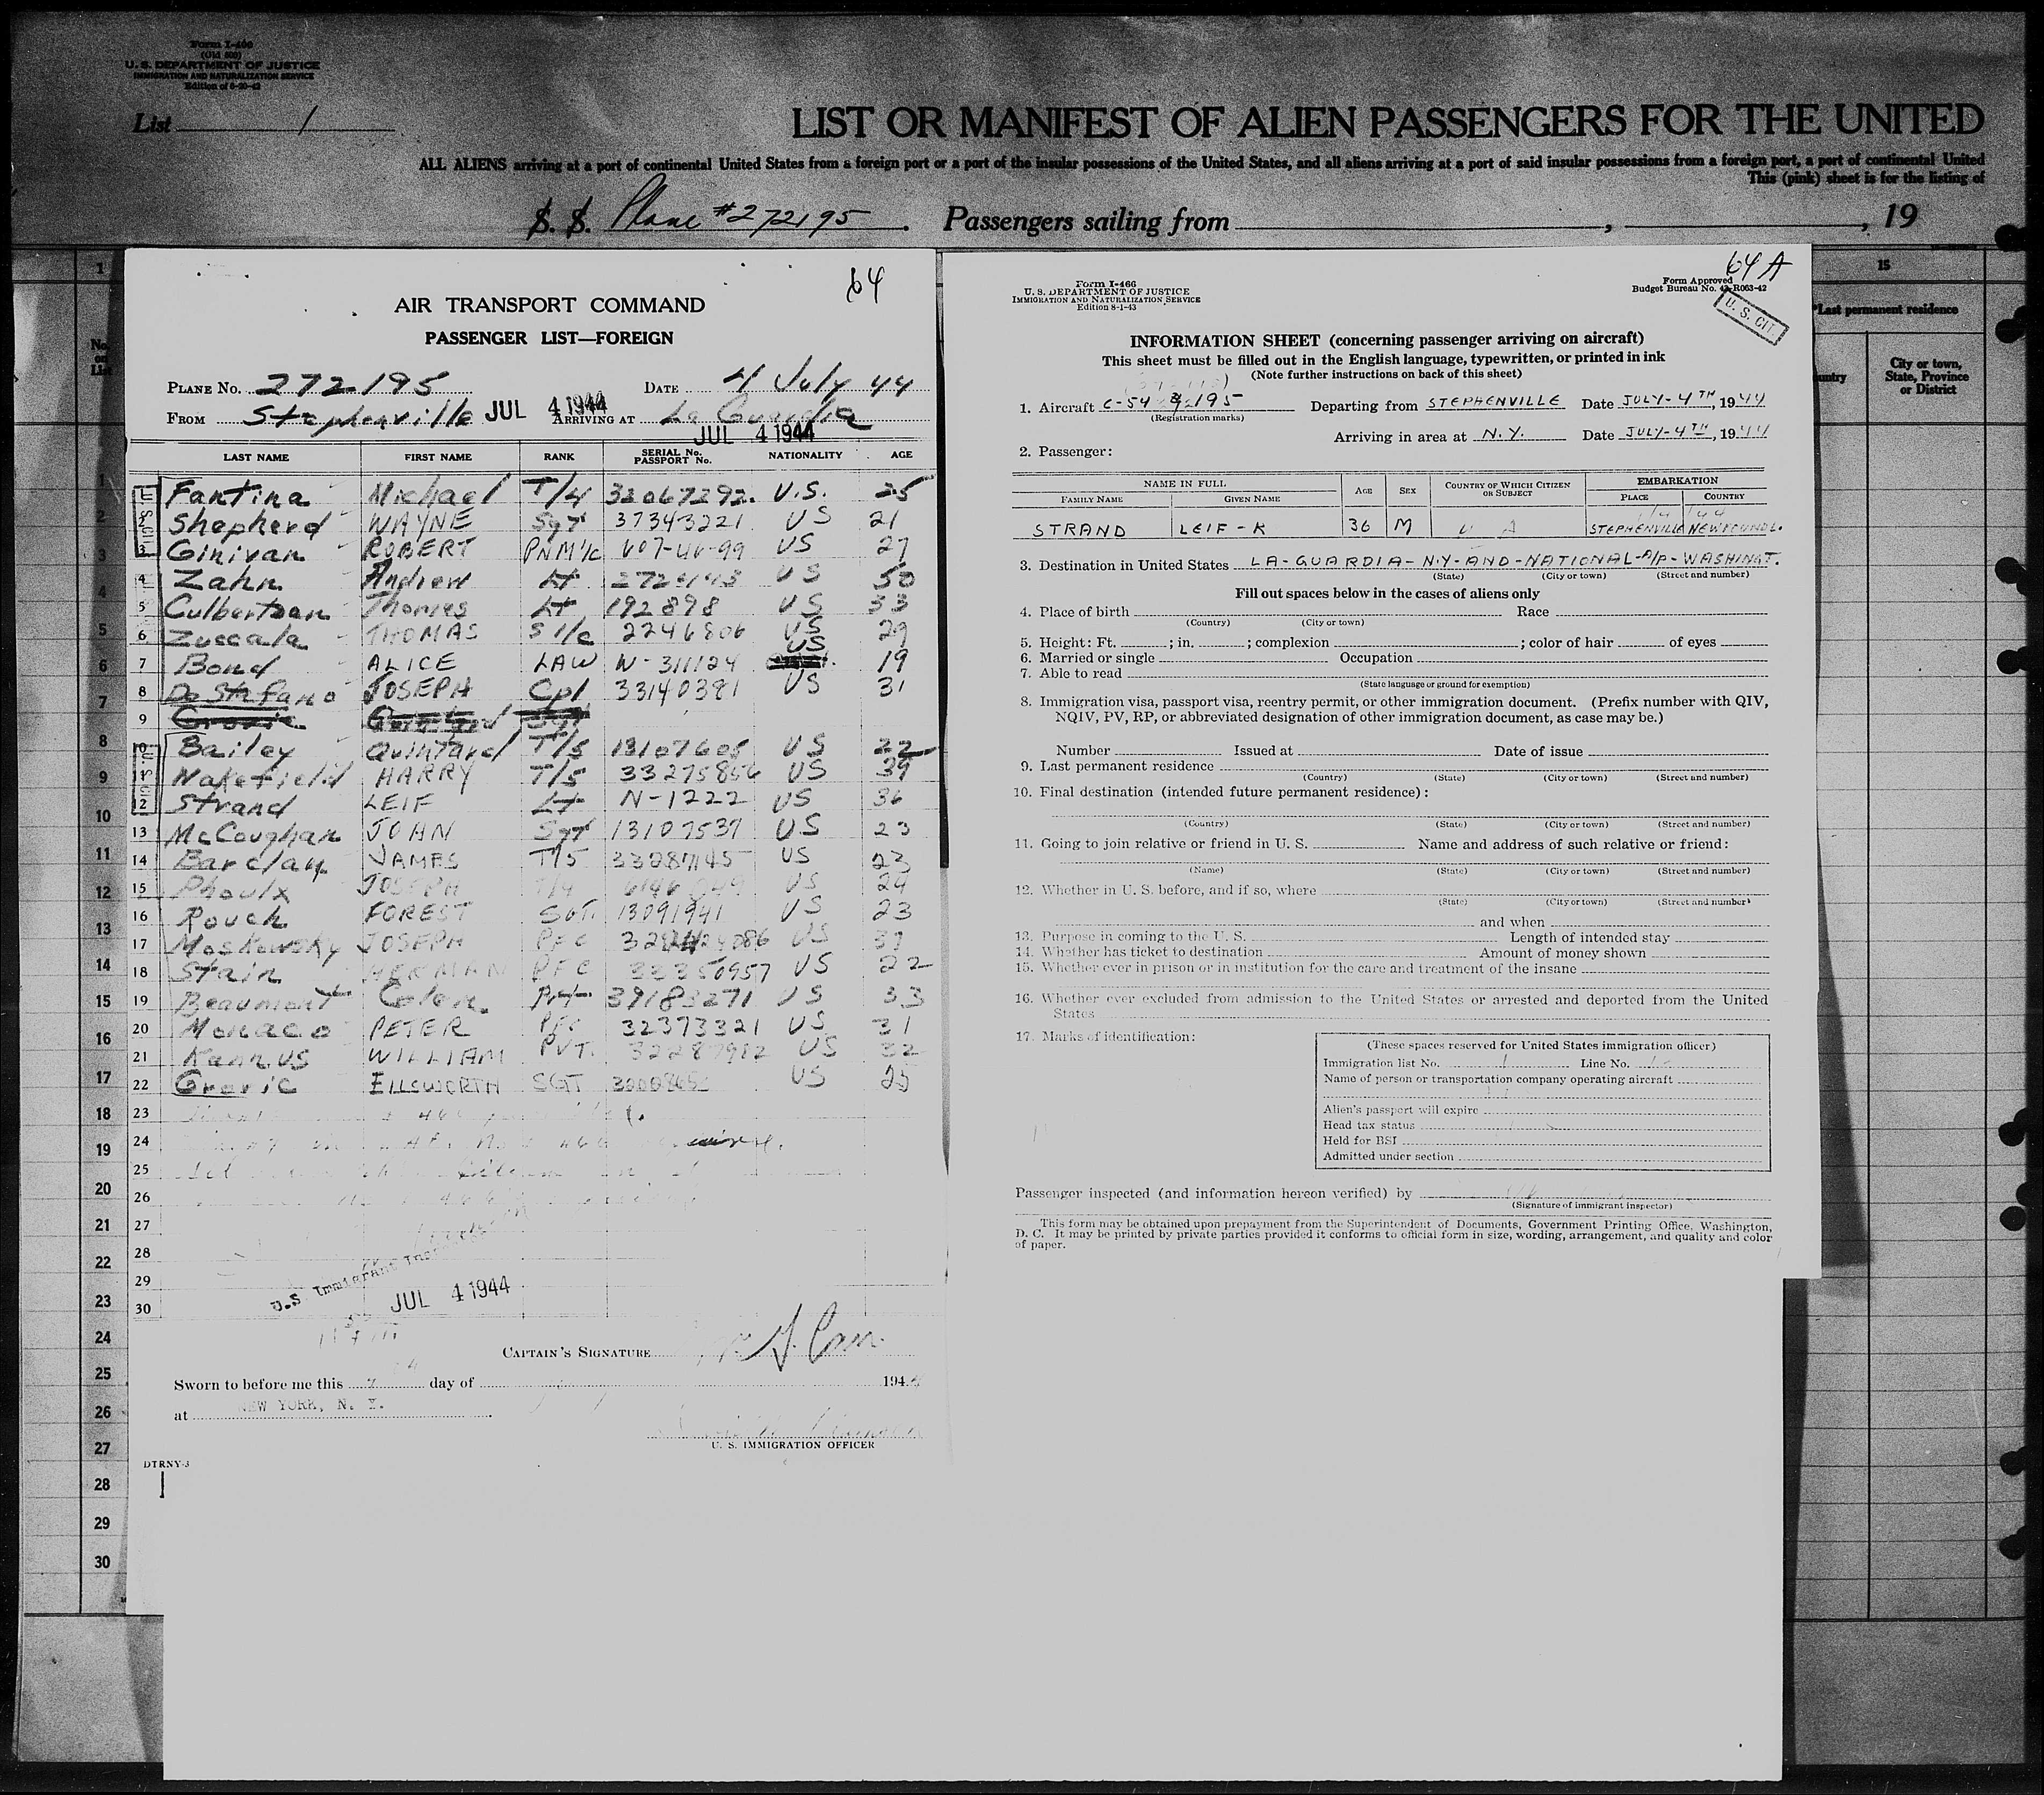 Form I-466
(Old 500)
U. S. DEPARTMENT OF JUSTICE
IMMIGRATION AND NATURALIZATION SERVICE
Edition of 8-20-42
List 1
LIST OR MANIFEST OF ALIEN PASSENGERS FOR THE UNITED
ALL ALIENS arriving at a port of continental United States from a foreign port or a port of the insular possessions of the United States, and all aliens arriving at a port of said insular possessions from a foreign port, a port of continental United
This (pink) sheet is for the listing of
S. S. Plane #272195. Passengers sailing from , , 19
64
AIR TRANSPORT COMMAND
PASSENGER LIST—FOREIGN
PLANE NO. 272195 DATE 4 July 44
FROM Stephenville JUL 4 1944 ARRIVING AT La Guardia
JUL 4 1944
LAST NAME FIRST NAME RANK SERIAL No. PASSPORT No. NATIONALITY AGE
Fantina Michael T/4 32067292. U.S. 25
Shepherd WAYNE Sgt 37343221 US 21
3 Ginivan ROBERT PNM1/c 607-46-99 US 27
4 Zahn Andrew Lt US 50
5 Culbertson Thomas Lt 192898 US 33
6 Zuccala THOMAS S1/c 2246806 US 29
7 Bond ALICE LAW W-311124 US 19
8 DeStefano JOSEPH Cpl 33140381 US 31
9
10 Bailey Quintard T/5 13107605 US 22
11 Wakefield HARRY T/5 33275856 US 39
12 Strand LEIF Lt N-1222 US 36
13 McCaughan JOHN Sgt 13107537 US 23
14 Barclay JAMES T/5 33287145 US 23
15 JOSEPH T/4 US 29
16 Rouch FOREST SGT. 13091941 US 23
17 Moskowsky JOSEPH PFC US 37
18 Stain HERMAN PFC 33350957 US 22
19 Beaumont Pvt 39183271 US 33
20 Monaco PETER PFC 32373321 US 31
21 Kannus WILLIAM PVT. 32287912 US 32
22 Grovic ELLSWORTH SGT US 25
23
24
25
26
27
28
29
30
U.S Immigrant Inspector
JUL 4 1944
CAPTAIN'S SIGNATURE
Sworn to before me this day of 194
at NEW YORK, N. Y.
U. S. IMMIGRATION OFFICER
DTRNY-3
64 A
Form I-466
U. S. DEPARTMENT OF JUSTICE
IMMIGRATION AND NATURALIZATION SERVICE
Edition 8-1-43
Form Approved
Budget Bureau No. 43-R063-42
U. S. CIT.
INFORMATION SHEET (concerning passenger arriving on aircraft)
This sheet must be filled out in the English language, typewritten, or printed in ink
(Note further instructions on back of this sheet)
1. Aircraft C-54 Departing from STEPHENVILLE Date JULY-4TH, 1944
(Registration marks)
Arriving in area at N.Y. Date JULY-4TH, 1944
2. Passenger:
NAME IN FULL AGE SEX COUNTRY OF WHICH CITIZEN OR SUBJECT EMBARKATION
FAMILY NAME GIVEN NAME PLACE COUNTRY
STRAND LEIF-K 36 M STEPHENVILLE NEWFOUNDL.
3. Destination in United States LA-GUARDIA-N.Y-AND-NATIONAL-A/P-WASHINGT.
(State) (City or town) (Street and number)
Fill out spaces below in the cases of aliens only
4. Place of birth Race
(Country) (City or town)
5. Height: Ft. ; in. ; complexion ; color of hair of eyes
6. Married or single Occupation
7. Able to read
(State language or ground for exemption)
8. Immigration visa, passport visa, reentry permit, or other immigration document. (Prefix number with QIV,
NQIV, PV, RP, or abbreviated designation of other immigration document, as case may be.)
Number Issued at Date of issue
9. Last permanent residence
(Country) (State) (City or town) (Street and number)
10. Final destination (intended future permanent residence):
(Country) (State) (City or town) (Street and number)
11. Going to join relative or friend in U. S. Name and address of such relative or friend:
(Name) (State) (City or town) (Street and number)
12. Whether in U. S. before, and if so, where
(State) (City or town) (Street and number)
and when
13. Purpose in coming to the U. S. Length of intended stay
14. Whether has ticket to destination Amount of money shown
15. Whether ever in prison or in institution for the care and treatment of the insane
16. Whether ever excluded from admission to the United States or arrested and deported from the United
States
17. Marks of identification:
(These spaces reserved for United States immigration officer)
Immigration list No. 1 Line No.
Name of person or transportation company operating aircraft
Alien's passport will expire
Head tax status
Held for BSI
Admitted under section
Passenger inspected (and information hereon verified) by
(Signature of immigrant inspector)
This form may be obtained upon prepayment from the Superintendent of Documents, Government Printing Office, Washington,
D. C. It may be printed by private parties provided it conforms to official form in size, wording, arrangement, and quality and color
of paper.
15
*Last permanent residence
City or town, State, Province or District
No. on List
1
2
3
4
5
6
7
8
9
10
11
12
13
14
15
16
17
18
19
20
21
22
23
24
25
26
27
28
29
30